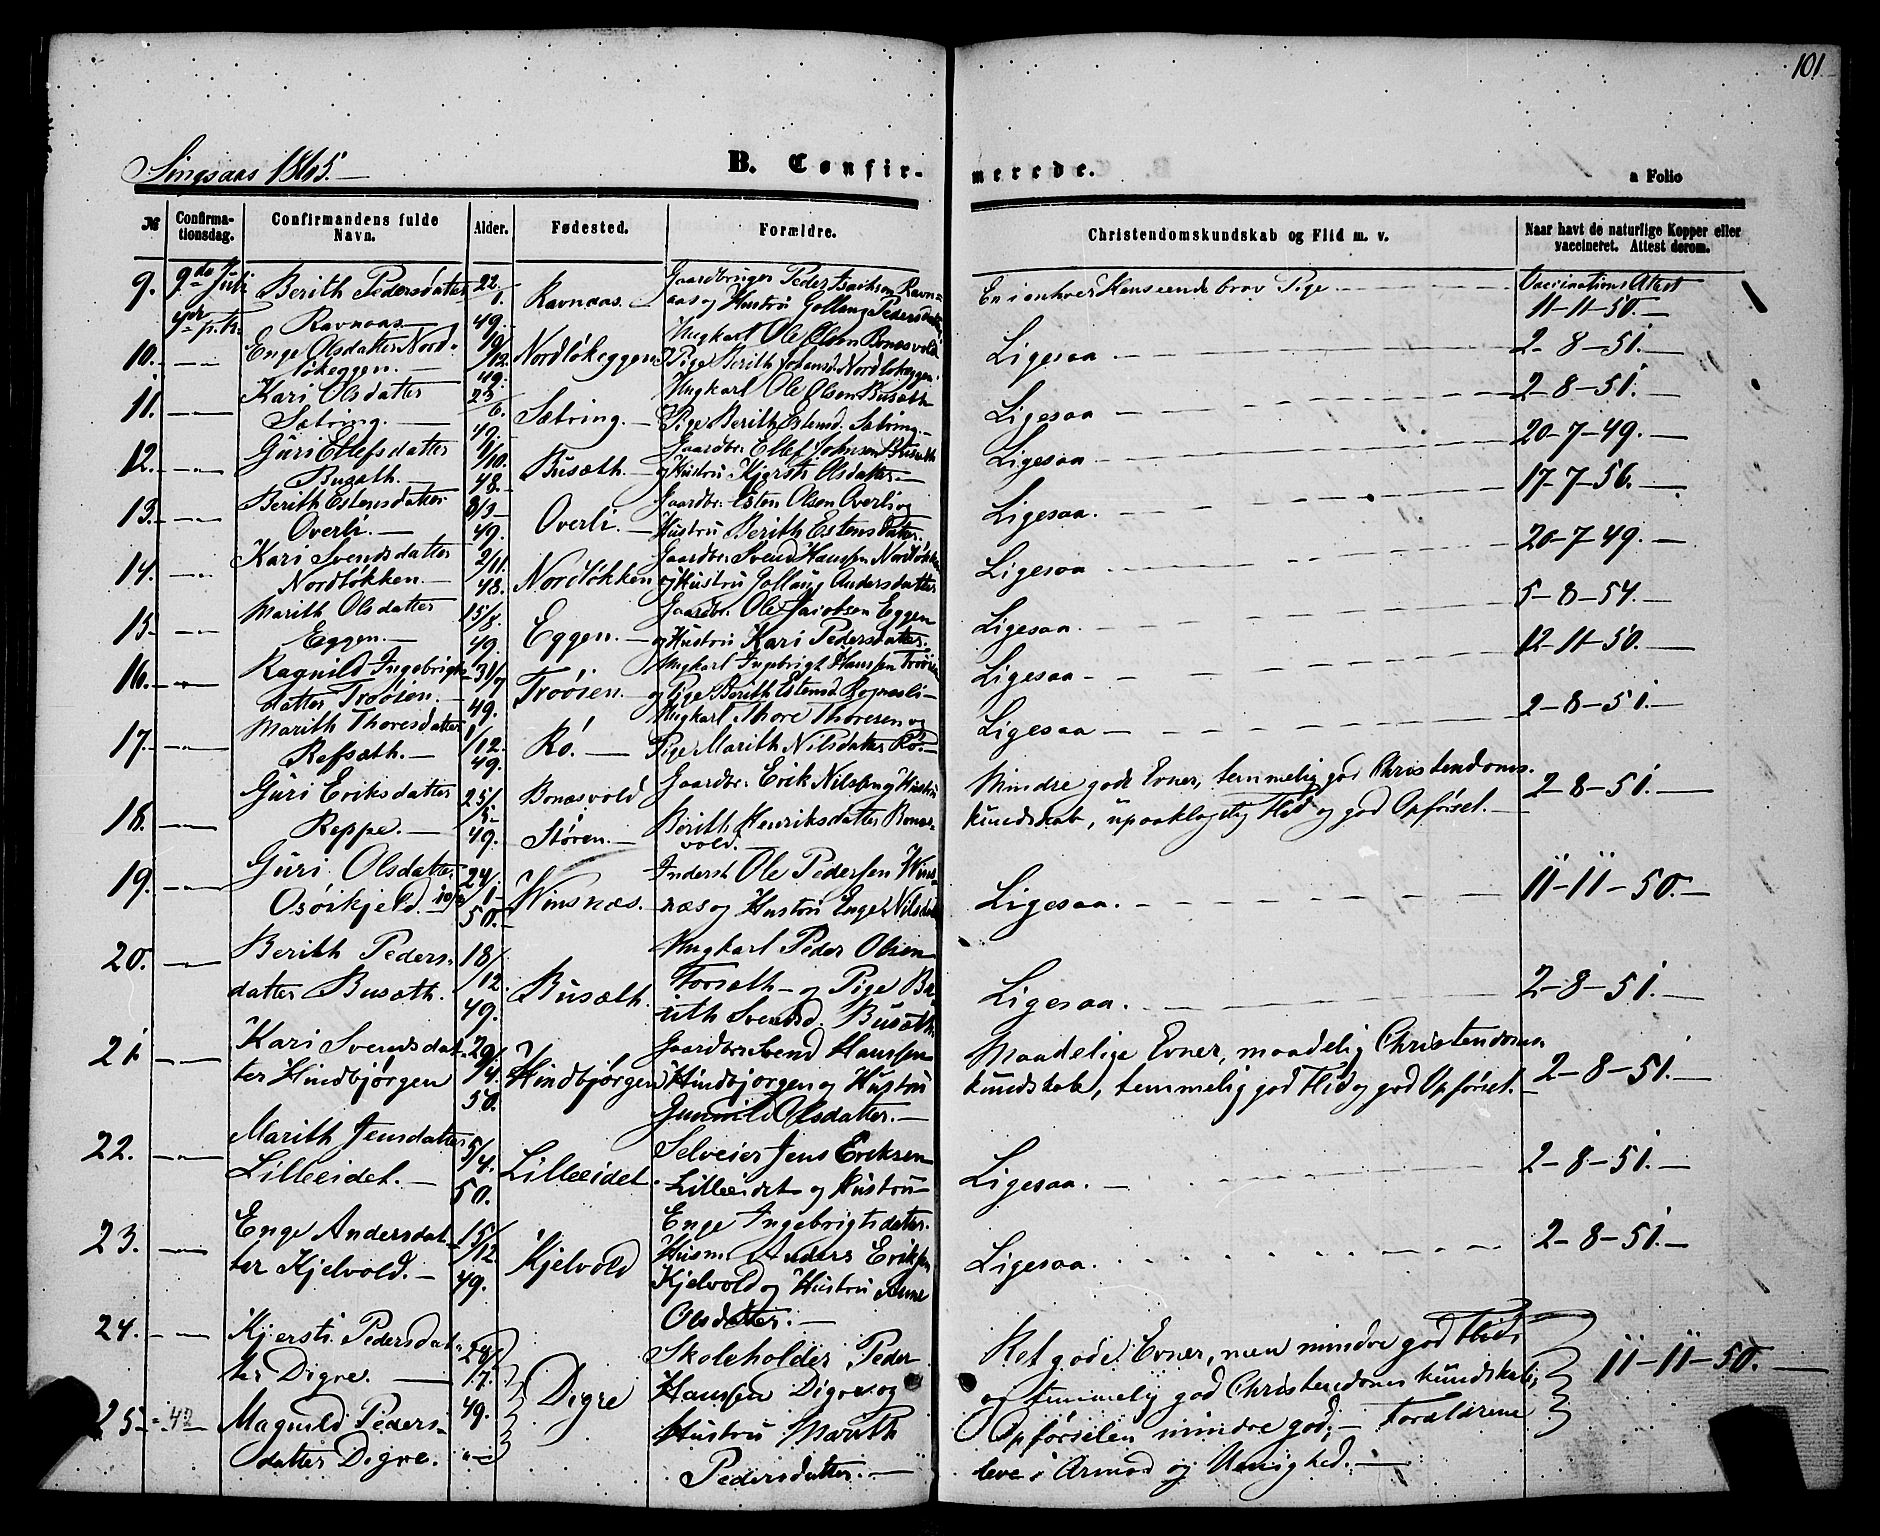 101
Singsaas 1865.
B. Confir-
merede.
a Folio
№ Confirma-tionsdag. Confirmandens fulde Navn. Alder. Fødested. Forældre. Christendomskundskab og Flid m. v. Naar havt de naturlige Kopper eller vaccineret. Attest derom.
9. 9de Juli Berith Pedersdatter 22/1. Ravnaas. Gaardbruger Peder Ravn- En i enhver Henseende brav Pige Vaccinations Attest
Ravnaas. 49. aas og Hustru Gollaug Pedersdatter 11-11-50.
10. Enge Olsdatter Nord- 19/12. Nordløkeggen. Ungkarl Ole Olsen Bonesvold Ligesaa 2-8-51.
løkeggen. 49. Pige Berith Johansd. Nordløkeggen.
11. Kari Olsdatter 23/6. Sætring. Ungkarl Ole Olsen Busæth Ligesaa 2-8-51.
Sætring. 49. Pige Berith Estensd. Sætring.
12. Guri Ellefsdatter 1/10. Busæth. Gaardbr. Ellef Johnsen Busæth Ligesaa 20-7-49.
Busæth. 48. og Hustru Kjersti Olsdatter.
13. Berith Estensdatter 8/3 Overli. Gaardbr. Esten Olsen Overli og Ligesaa. 17-7-56.
Overli. 49. Hustru Berith Estensdatter.
14. Kari Svendsdatter 2/11. Nordløkken Gaardbr. Svend Hansen Nordløkken Ligesaa 20-7-49.
Nordløkken. 48. og Hustru Gollaug Andersdatter
15. Marith Olsdatter 15/8. Eggen. Gaardbr. Ole Jacobsen Eggen Ligesaa. 5-8-54.
Eggen. 49. og Hustru Kari Pedersdatter.
16. Ragnild Ingebrigts- 31/7 Troøien. Ungkarl Ingebrigt Hansen Troøien Ligesaa 12-11-50.
datter Troøien. 49. og Pige Berith Estensd. Rognesli
17. Marith Thoresdatter 1/12. Rø. Ungkarl Thore Thoresen og Ligesaa 2-8-51.
Refsæth. 49. Pige Marith Nilsdatter Rø.
18. Guri Eriksdatter 25/5 Bonesvold Gaardbr. Erik Nilsen og Hustru Mindre gode Evner, temmelig god Christendoms- 2-8-51.
Reppe. 49. Støren. Berith Henriksdatter Bones- kundskab, upaaklagelig Flid og god Opførsel.
vold.
19. Guri Olsdatter 24/1 Winsnæs. Inderst Ole Pedersen Wins- Ligesaa. 11-11-50.
50. næs og Hustru Enge Nilsdatter
20. Berith Peders- 18/12. Busæth. Ungkarl Peder Olsen Ligesaa. 2-8-51.
datter Busæth. 49. Forsæth og Pige Be-
rith Svendsd. Busæth.
21. Kari Svendsdat- 29/4. Hindbjørgen Gaardbr. Svend Hansen Maadelige Evner, maadelig Christendoms- 2-8-51.
ter Hindbjørgen 50. Hindbjørgen og Hustru kundskab, temmelig god Flid og god Opførsel.
Gunnild Olsdatter.
22. Marith Jensdatter 5/4. Lilleeidet. Selveier Jens Eriksen Ligesaa. 2-8-51.
Lilleeidet. 50. Lilleeidet og Hustru
Enge Ingebrigtsdatter.
23. Enge Andersdat- 15/12. Kjelvold Husm. Anders Eriksen Ligesaa. 2-8-51.
ter Kjelvold. 49. Kjelvold og Hustru Anne
Olsdatter.
24. Kjersti Pedersdat- Digre Skoleholder Peder Ret gode Evner, men mindre god Flid 11-11-50.
ter Digre. Hansen Digre og og temmelig god Christendomskundskab,
25. 42 Magnild Peders- 49. Hustru Marith Opførselen mindre god, Forældrene
datter Digre. Pedersdatter. leve i Armod og Uenighed.